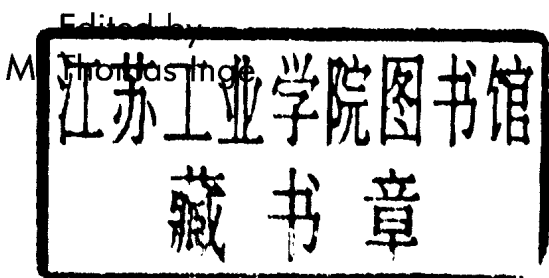 Edited by
M. Thomas Inge
江苏工业学院图书馆
藏书章